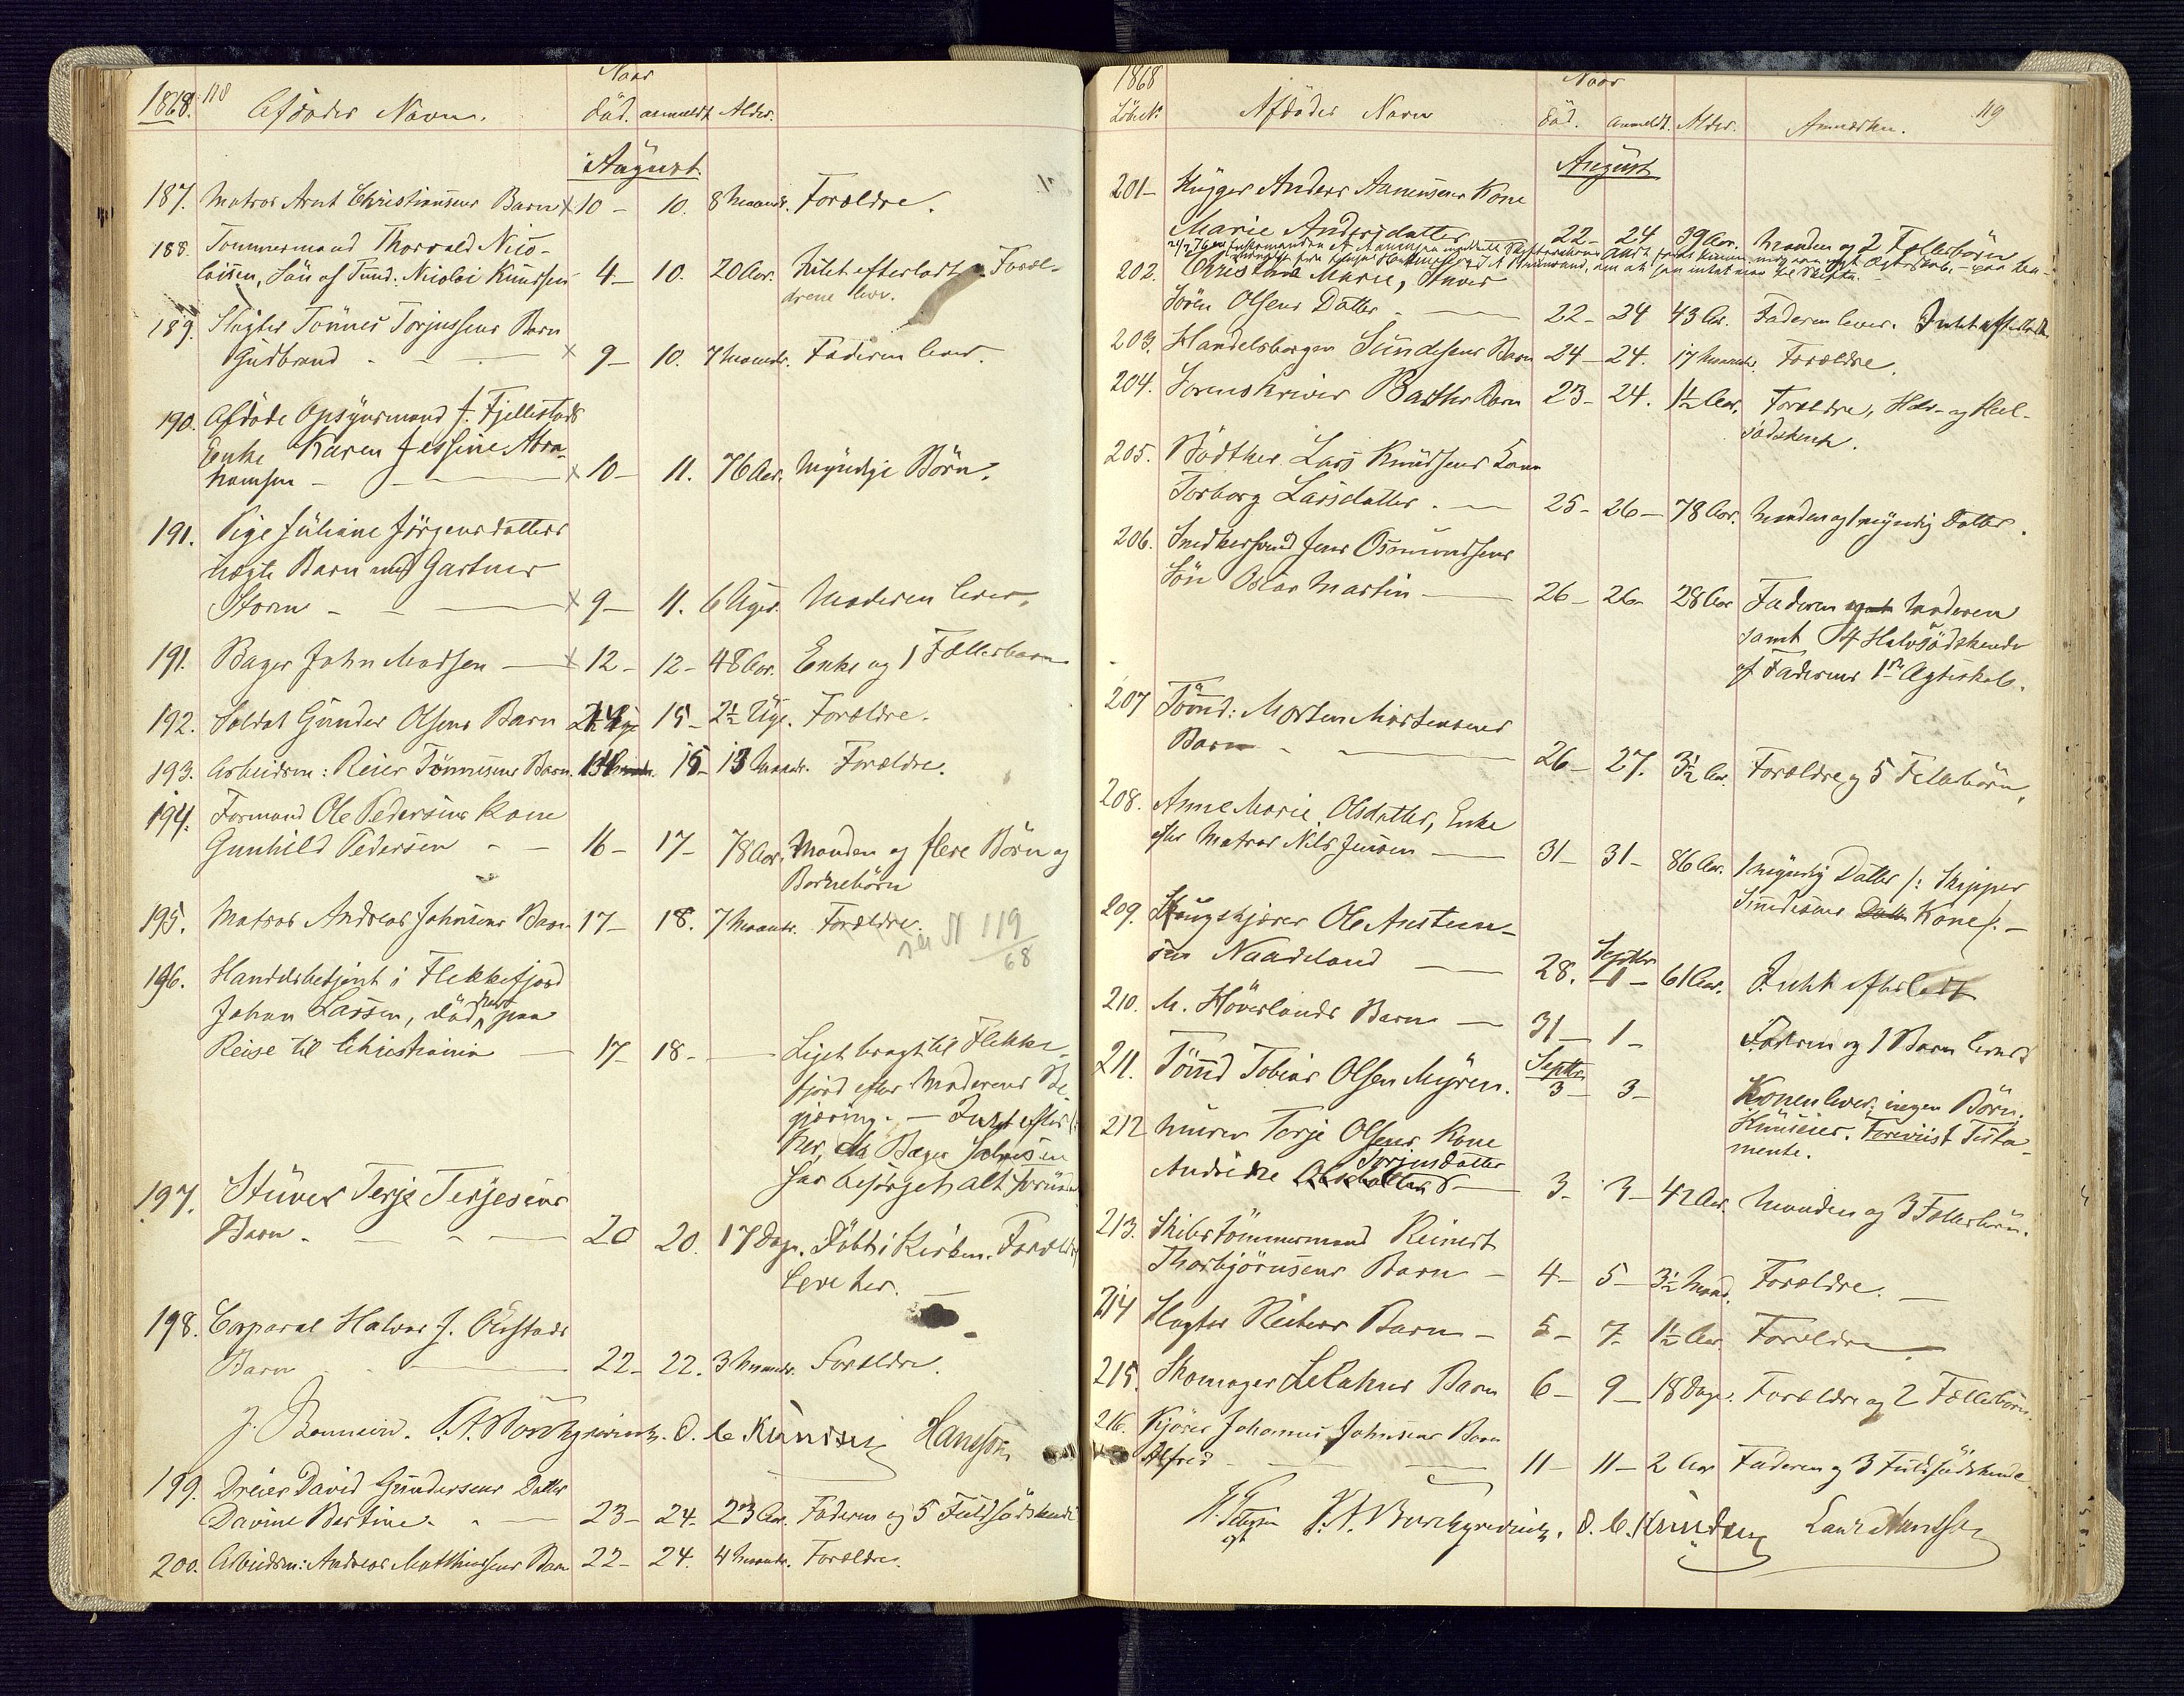 1868. 118
Afdødes Navn.
Naar
död. anmeldt Alder.
August.
187. Matros Arnt Christiansens Barn x 10 – 10. 8 Maander. Forældre.
188. Tømmermand Thorvald Nico-
laisen, Sön af Tmd. Nicolai Knudsen 4 – 10. 20 Aar. Intet efterladt. Foræl-
drene lever.
189. Slagter Tönnes Torjussens Barn
Gudbrand – x 9 – 10. 7 Maander. Faderen lever.
190. Afdöde Opsynsmand J. Fjellestads
Enke Karen Jessine Abra-
hamsen – x 10 – 11. 76 Aar. Myndige Börn.
191. Pige Juliane Jörgensdatters
uægte Barn med Gartner
Storm – x 9 – 11. 6 Uger. Moderen lever.
191. Bager John Madsen – x 12 – 12 – 48 Aar. Enke og 1 Fællesbarn
192. Soldat Gunder Olsens Barn 14 15 – 2½ Uge. Forældre.
193. Arbeidsm: Reier Tönnesens Barn. 15 – 13 Maander. Forældre.
194. Formand Ole Pedersens Kone
Gunhild Pedersen – – 16 – 17 – 78 Aar. Manden og flere Börn og
Barnebörn
195. Matros Andreas Johnsens Barn 17 – 18. 7 Maander. Forældre.
119
68
196. Handelsbetjent i Flekkefjord
Johan Larsen, död her paa
Reise til Christiania – 17 – 18 – Liget bragt til Flekke-
fjord efter Moderens Be-
gjæring. – Intet efterl:
her, da Bager Johnsen
har besörget alt
197. Stuver Terje Terjesens
Barn. – 20 20. 17 Dage. Döbt i Kirken. Forældre
leve her.
198. Corporal Halvor J. Öistads
Barn – 22 – 22. 3 Maander. Forældre.
O. C. Knudsen Hansson
199. Dreier David Gundersens Datter
Davine Bertine. – 23 – 24. 23 Aar. Faderen og 5 Fuldsödskende
200. Arbeidsm: Andreas Matthiassens Barn 22 – 24. 4 Maander. Forældre.
1868
Löbe No
Afdödes Navn
Naar
död. Anmeldt. Alder. Anmærkn. 119
August
201 – Anders Aanensens Kone
Marie Andersdatter 22 – 24 39 Aar. Manden og 2 Fællesbörn
202. Christine Marie,
Sören Olsens Datter – 22 – 24 43 Aar. Faderen lever. Intet efterladt
203. Handelsborger Sundesens Barn 24 – 24. 17 Maander. Forældre.
204. Sorenskriver Barths Barn 23 – 24. 1½ Aar. Forældre, Halv- og Hel-
södskende.
205. Bödtker Lars Knudsens Kone
Torborg Larsdatter. – 25 – 26 – 78 Aar. Manden og 1 myndig Datter.
206. Snedkersvend Jens Osmundsens
Sön Oscar Martin – 26 – 26 28 Aar Faderen og Moderen
samt 4 Halvsödskende
af Faderens 1ste Ægteskab.
207 Tömd: Morten Mortensens
Barn – 26 – 27. 3½ Aar. Forældre og 5 Fellesbörn.
208. Anne Marie Olsdatter, Enke
efter Matros Nils Jensen – 31 – 31 – 86 Aar. 1 myndig Datter /: Skipper
Datter Kone /. –
209. Ole Austen-
sen Naadeland – 28. Septbr 1 – 61 Aar. Intet efterladt
210. M. Höverlands Barn – 31 – 1 – Faderen og 1 Barn lever
211. Tömd Tobias Olsen Myren. Septbr 3 – 3 – Konen lever; ingen Börn.
Testa-
mente.
212 Murer Terje Olsens Kone
Andrea Torjusdatter – 3 – 3 – 42 Aar. Manden og 3 Fællesbörn.
213. Skibstömmermand Reinert
Thorbjörnsens Barn – 4 – 5 – 3½ Maand. Forældre. –
214 Slagter Reiters Barn – 5 – 7 – 1½ Aar Forældre
215. Skomager Barn 6 – 9 – 18 Dage. Forældre og 2 Fællesbörn.
216. Kjörer Johannes Johnsens Barn
Alfred – 11 – 11 – 2 Aar Faderen og 3 Fuldsödskende
O. C. Knudsen